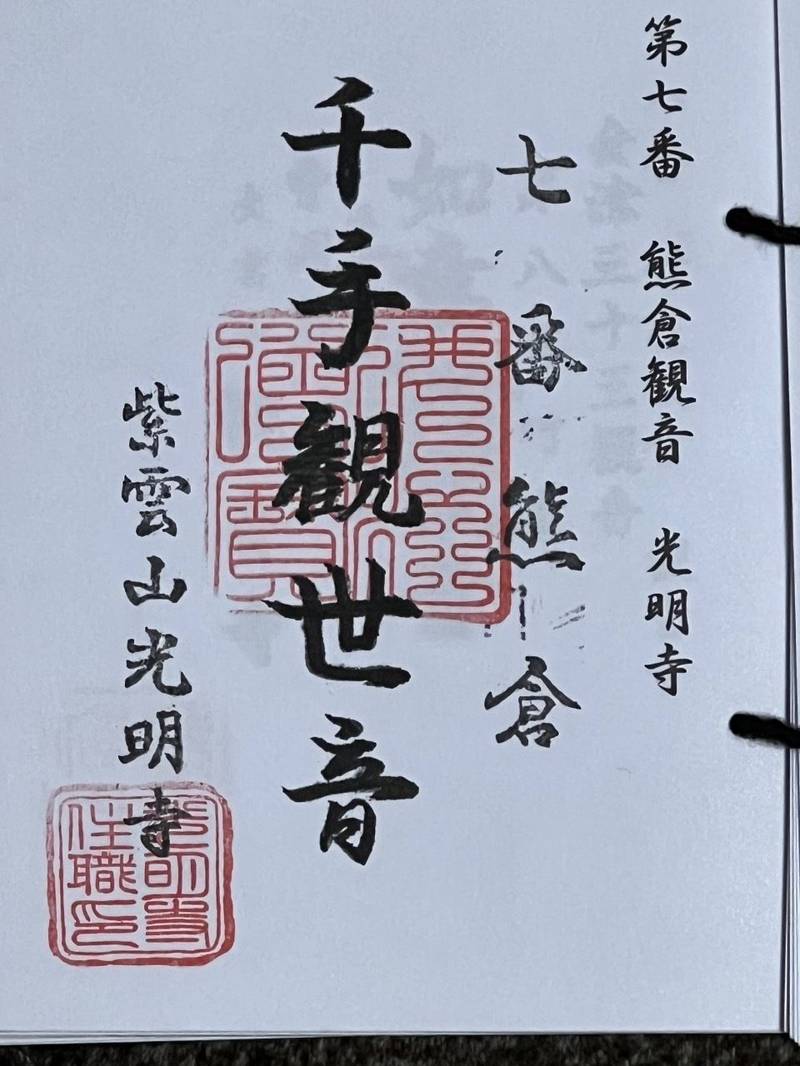 第七番　熊倉観音　光明寺
七番熊倉
千手観世音
紫雲山光明寺
光明寺
住職印